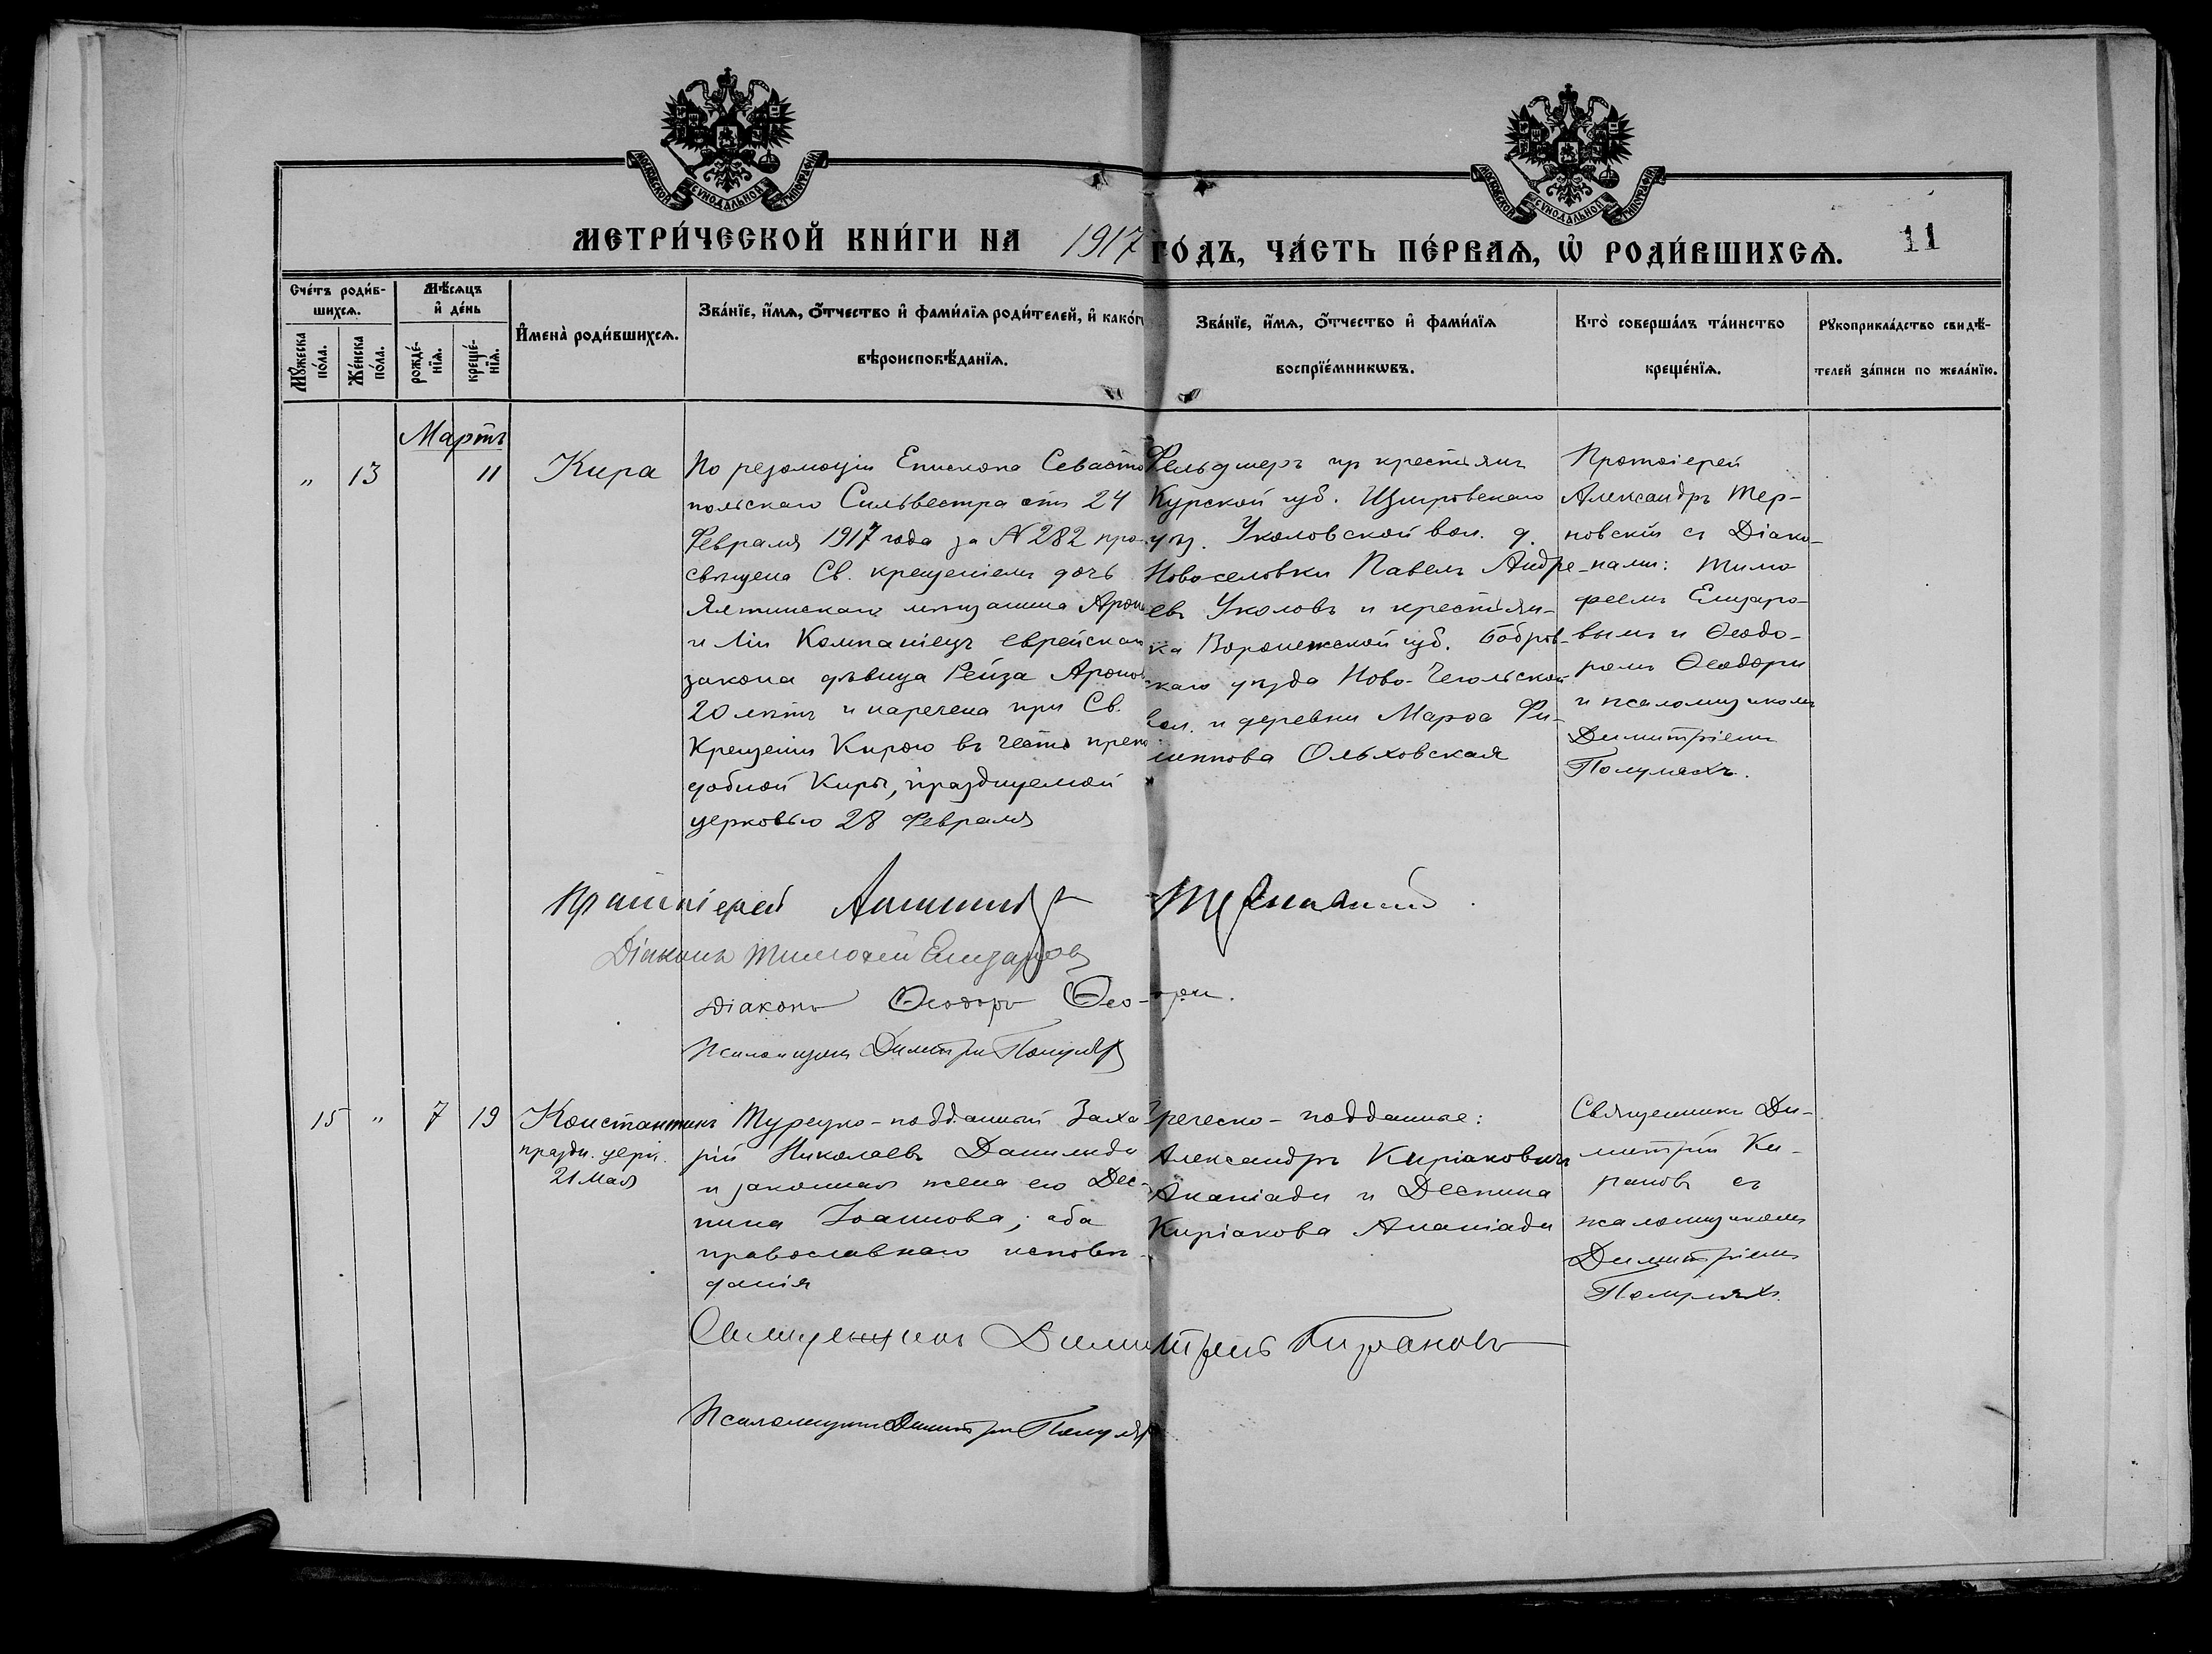 МОСКОВСКОЙ СѴНОДАЛЬНОЙ ТИПОГРАФІИ
МОСКОВСКОЙ СѴНОДАЛЬНОЙ ТИПОГРАФІИ
МЕТРИ́ЧЕСКОЙ КНИ́ГИ НА 1917 ГО́ДЪ, ЧА́СТЬ ПЕ́РВАѦ, Ѡ҆ РОДИ́ВШИХСѦ. 11
Сче́тъ роди́в-
шихсѧ.
Мꙋ́жеска по́ла.
Же́нска по́ла.
Мѣ́сѧцъ и҆ де́нь
рожде́-нїѧ.
креще́-нїѧ.
И҆мена̀ роди́вшихсѧ.
Зва́нїе, и҆́мѧ, ѻ҆́тчество и҆ фами́лїѧ роди́телей, и҆ како́гѡ
вѣроисповѣ́данїѧ.
Зва́нїе, и҆́мѧ, ѻ҆́тчество и҆ фами́лїѧ
воспрїе́мникѡвъ.
Кто̀ соверша́лъ та́инство
креще́нїѧ.
Рꙋкоприкла́дство свидѣ́-
телей за́писи по жела́нїю.
Мартъ
" 13 11 Кира
По резолюціи Епископа Севасто
польскаго Сильвестра отъ 24
Февраля 1917 года за N 282 про-
свѣщена Св. крещеніемъ дочь
Ялтинскаго мѣщанина Арона
и Ліи Компаніецъ еврейскаго
закона дѣвица Рейза Аронов
20 лѣтъ и наречена при Св.
Крещеніи Кирою въ честь препо
добной Киры, празднуемой
церковью 28 Февраля
Фельдшеръ пр крестьянъ
Курской губ. Щигровскаго
уѣз. Уколовской вол. д.
Новоселовки Павелъ Андре-
евъ Уколовъ и крестьян-
ка Воронежской губ. Бобров-
скаго уѣзда Ново-Чегольской
вол. и деревни Марѳа Фи-
липпова Ольховская
Протоіерей
Александръ Тер-
новскій съ Діако-
нами: Тимо
феемъ Елизаро-
вымъ и Ѳеодо-
ромъ Ѳеодори
и псаломщикомъ
Димитріемъ
Полуляхъ.
Протоіерей Александръ Терновскій
Діаконъ Тимофей Елизаровъ
Діаконъ Ѳеодоръ Ѳео-дори.
Псаломщикъ Димитрій Полуляхъ
15 " 7 19 Константинъ
праздн. церк.
21 Мая
Турецко-подданный Заха
рій Николаевъ Данилиди
и законная жена его Дес-
пина Іоаннова; оба
православнаго исповѣ-
данія
Греческо-подданные:
Александръ Киріаковичъ
Ананіади и Деспина
Киріакова Ананіади
Священникъ Ди-
митрій Ки-
рановъ съ
псаломщикомъ
Димитріемъ
Полуляхъ.
Священникъ Димитрій Кирановъ
Псаломщикъ Димитрій Полуляхъ